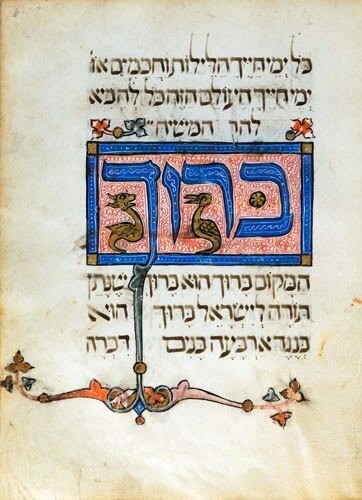 כל ימי חייך הלילות וחכמים או
ימי חייך העולם הזה כל להביא
המשיח
ברוך
המקום ברוך הוא ברוך שנתן
תורה לישראל ברוך הוא
כנגד ארבעה בנים דברה